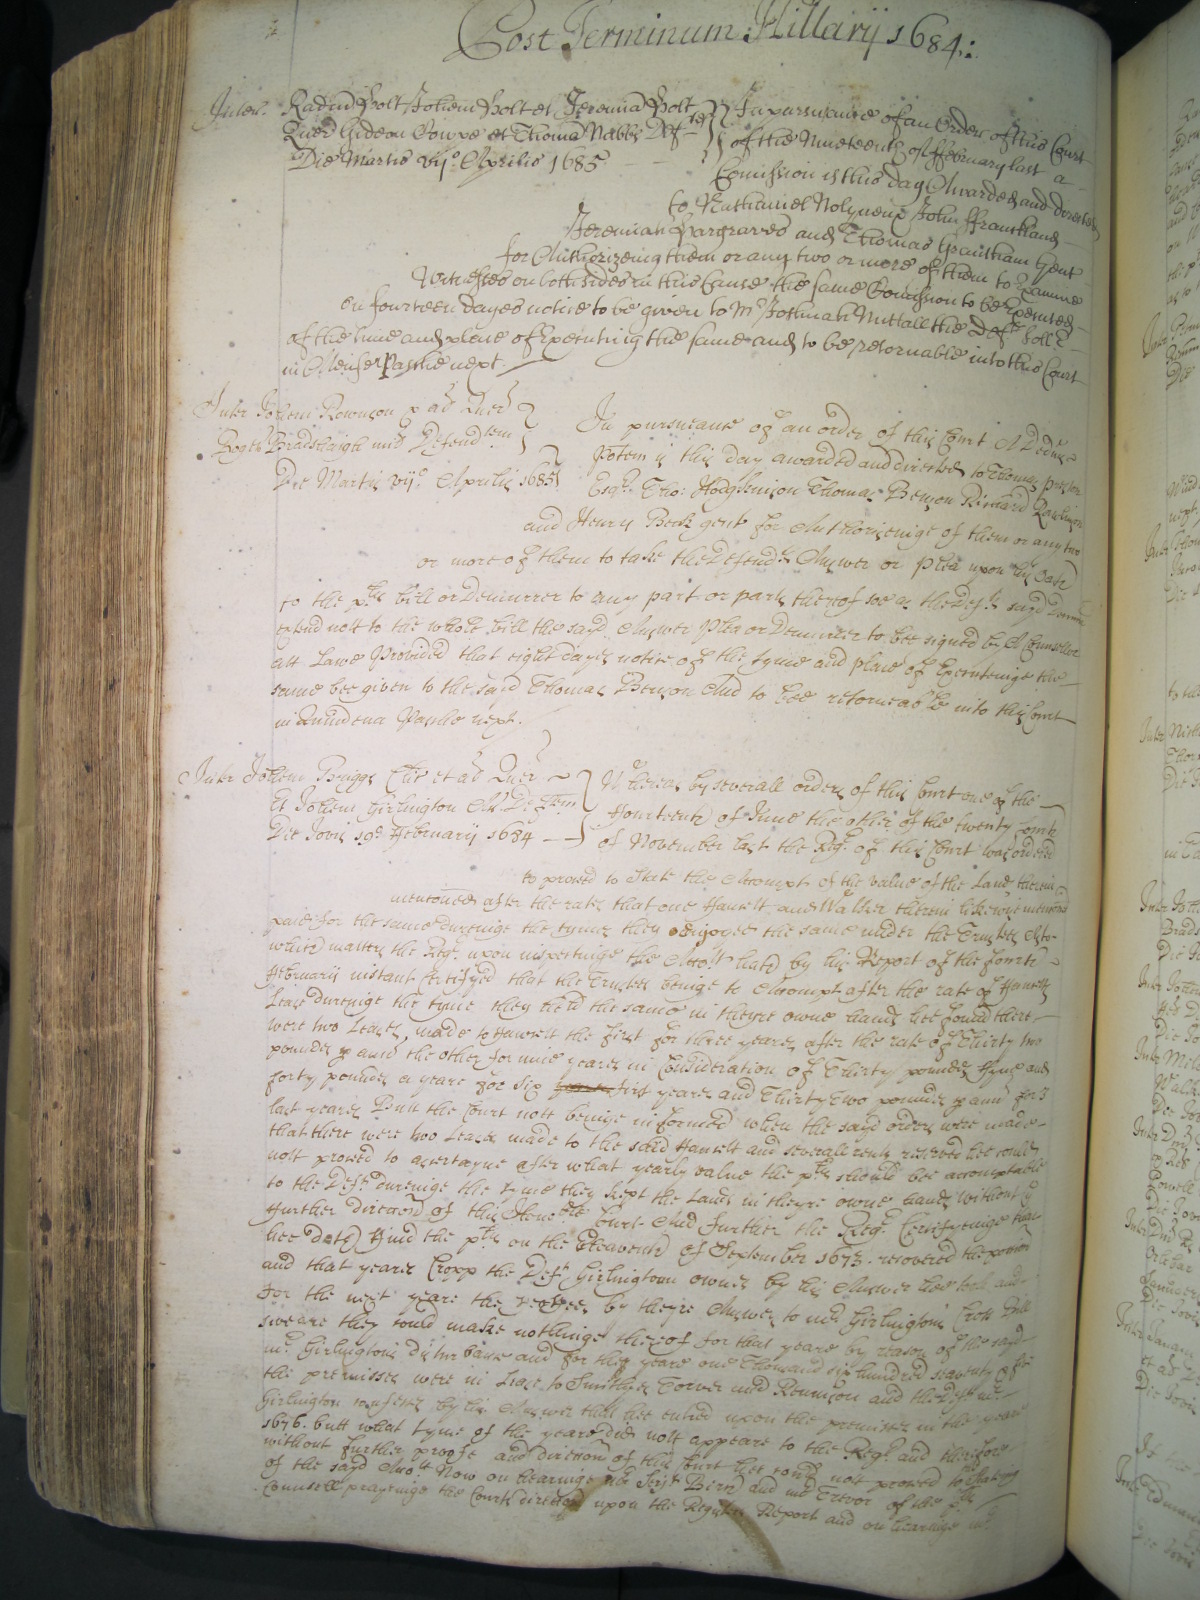 Post Terminum Hillarij 1684.:
Inter. Radūm Holt Johem Holt et Jeremiā Holt
Quer Gideon Cowpe et Thomā Nabbs Def
Die Martis vijo. Aprilis 1685
In pursuance of an Order of this Court
of the Nineteenth of ffebruary last a
Comission is this day Awarded and directed
to Nathaniel Molyneux John ffrankland
Jeremiah Hargraves and Thomas Grantham Gent
for Authorizeing them or any two or more of them to Examine
Witnesses on both sides in this Cause the same Comission to be Executed
on fourteen dayes notice to be given to Mr. Nuttall the Defts. Sollr.
of the time and place of Executing the same and to be retornable into this Court
in Mense Pasche next.
Inter Johem Rowinson et ad Quer
Roger Bradshaigh Defendtem
Die Martis vijo. Aprilis 1685
In pursuance of an order of this Court A Dedimus
Potem is this day awarded and directed to Thomas Preston
Esqr. Tho: Hodgkinson Thomas Benson Richard Rawlinson
and Henry Beck gent for Authorizeinge of them or any two
or more of them to take the Defendts Answer or Plea upon his Oath
to the plts bill or Demurrer to any part or parts thereof soe as the Defts sayd Demurrer
extend nott to the whole bill the sayd Answer Plea or Demurrer to bee signed by A Counsellor
att Lawe Provided that eight dayes notice of the tyme and place of Executeinge the
same bee given to the said Thomas Benson And to bee retorneable into this Court
in Quindena Pasche next.
Inter Johem Briggs Cler et ad Quer
Et Johem Girlington Ar Deftem
Die Jovis 19o. February 1684
Whereas by severall orders of this Court one of the
fourteenth of June the other of the twenty fourth
of November last the Regr. of this Court was ordered
to proceed to State the Accompts of the value of the Lands therein
mentioned after the rates that one Hansett and Walker therein likewise mentioned
paid for the same dureinge the tymes they enjoyed the same under the Trustees
which matters the Regr. upon inspectinge the Accots. hath by his Report of the fourth
February instant Certifyed that the Trustees beinge to Accompt after the rate of Hansetts
Lease dureinge the tyme they held the same in theyre owne hands hee found there
were two Leases, made to Hansett the first for three yeares after the rate of Thirty two
pounds p ann the other for nine yeares in Consideration of Thirty pounds fyne and
forty pounds a yeare for six first yeares and Thirty two pounds p ann for 3
last yeares Butt the Court nott beinge informed when the sayd orders were made
that there were two Leases made to the said Hansett and severall rents reserved hee could
nott proceed to ascertayne after what yearly value the plts should bee accomptable
to the Deft. dureinge the tyme they kept the Lands in theyre owne hands without the
further direccon of this Honoble Court. And further the Regr. Certifyeinge that
hee doth find the plts on the Eleaventh of September 1673. recovered the possion
and that yeares Cropp the Deft. Girlington ownes by his Answer hee tooke and
for the next yeare the Trustees by theyre Answer to mr. Girlingtons Cross Bill
sweare they could make nothinge thereof for that yeare by reason of the sayd
mr. Girlingtons disturbance and for the yeare one Thousand six hundred seaventy &
the premisses were in Lease to Smithyes Corner and Rennison and the Deft mr.
Girlington confesses by his Answer that hee entred upon the premisses in the yeare
1676. butt what tyme of the yeare did nott appeare to the Regr. and therefore
without further proofe and direction of this Court hee could not proceed to Stateing
of the sayd Accots. Now on hearinge mr Serjt. Birch and mr Trevor of the plts
Counsell prayeinge the Courts direction upon the Registers Report and on hearinge mr.